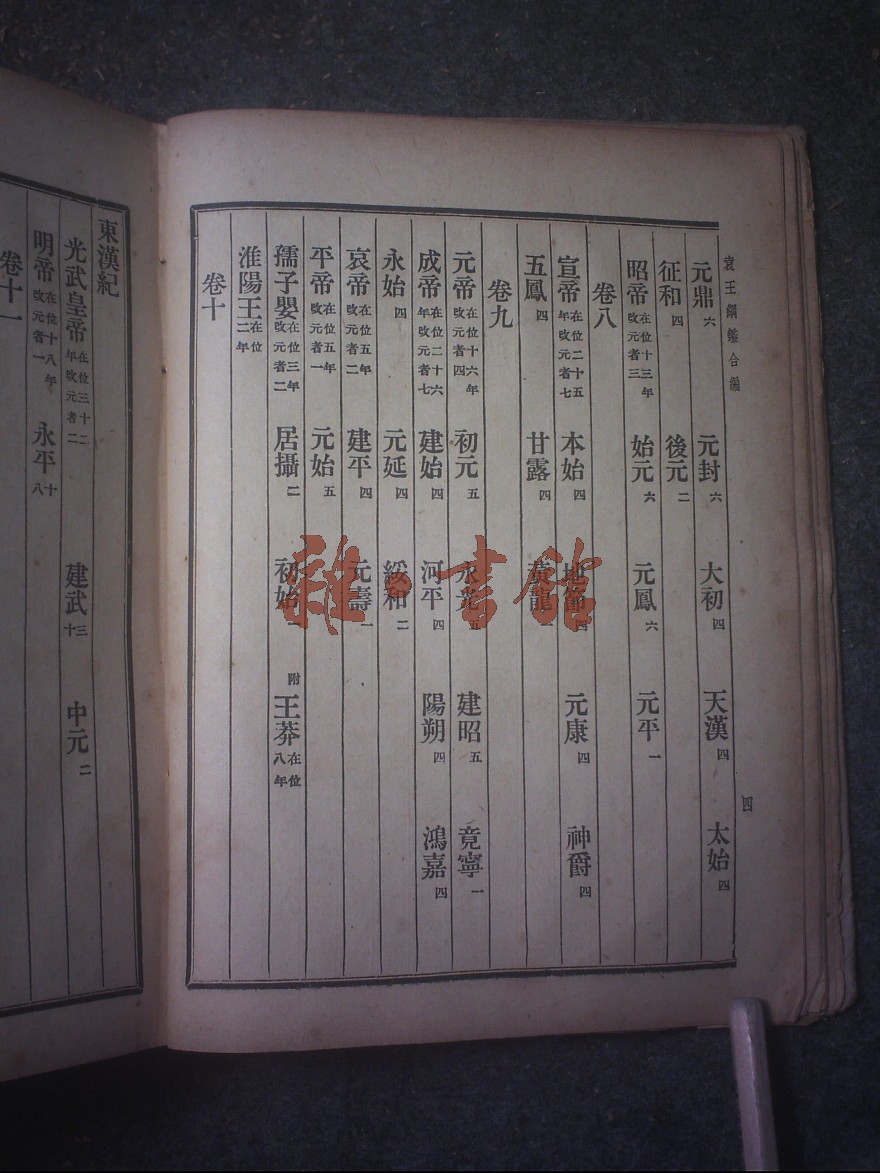 袁王綱鑑合編
四
元鼎六 元封六 大初四 天漢四 太始四
征和四 後元二
昭帝在位十三年改元者三 始元六 元鳳六 元平一
卷八
宣帝在位二十五年改元者七 本始四 地節四 元康四 神爵四
五鳳四 甘露四 黃龍一
卷九
元帝在位十六年改元者四 初元五 永光五 建昭五 竟寧一
成帝在位二十六年改元者七 建始四 河平四 陽朔四 鴻嘉四
永始四 元延四 綏和二
哀帝在位五年改元者二 建平四 元壽一
平帝在位五年改元者一 元始五
孺子嬰在位三年改元者二 居攝二 初始一 附王莽在位八年
淮陽王在位二年
卷十
東漢紀
光武皇帝在位三十二年改元者二 建武三十 中元二
明帝在位十八年改元者一 永平十八
卷十一
雜·書館